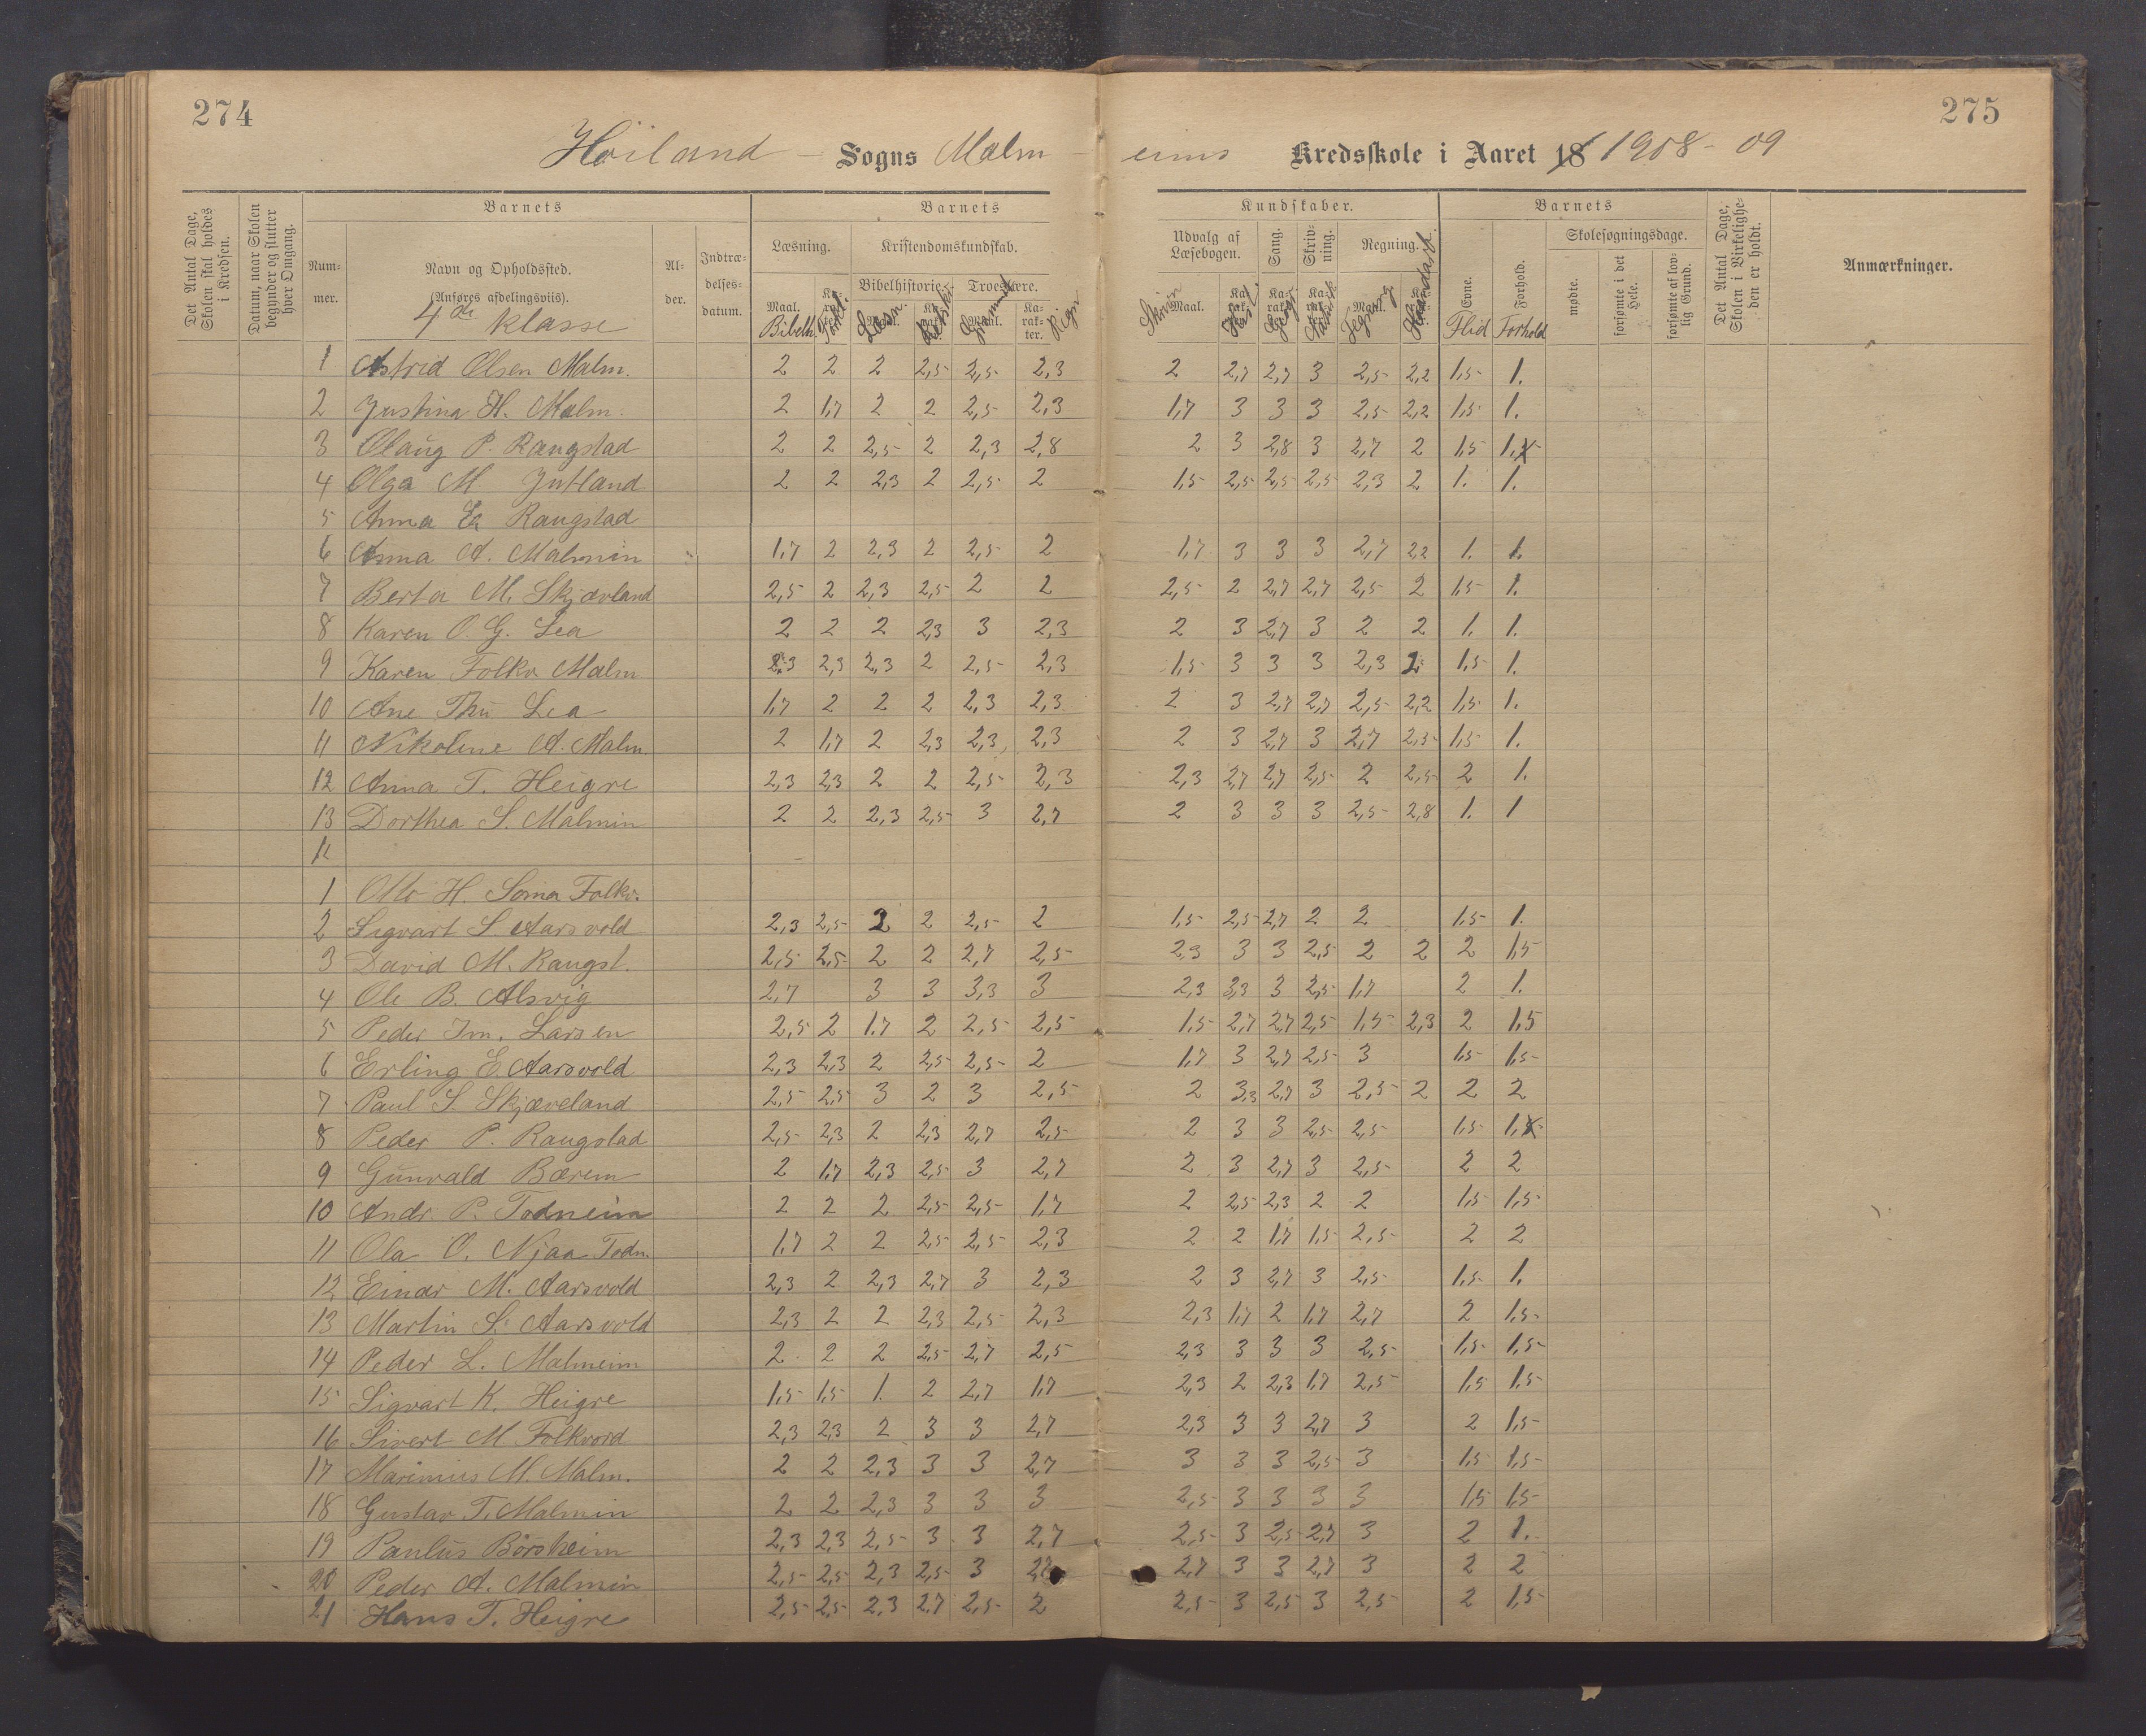 274
275
Höiland - Sogns Malm - eims Kredsskole i Aaret 18 1908-09
Det Antal Dage, Skolen skal holdes i Kredsen.
Datum, naar Skolen begynder og slutter hver Omgang.
Barnets
Nummer.
Navn og Opholdssted.
(Anføres afdelingsviis).
4de Klasse
Alder.
Indtrædelsesdatum.
Barnets
Kundskaber.
Læsning.
Kristendomskundskab.
Bibelhistorie.
Troeslære.
Udvalg af Læsebogen.
Sang.
Skrivning.
Regning.
Haandarb.
Barnets
Evne.
Forhold.
Skolesøgningsdage.
mødte.
forsømte i det Hele.
forsømte af lovlig Grund.
Det Antal Dage, Skolen i Virkeligheden er holdt.
Anmærkninger.
Bibelh. Forkl. Læsn. Retskr. Gramm. Rign
Skriv Hist. Geogr. Naturk. Tegning Flid Forhold
1 Astrid Olsen Malm. 2 2 2 2,5 2,5 2,3 2 2,7 2,7 3 2,5 2,2 1,5 1.
2 Justina H. Malm. 2 1,7 2 2 2,5 2,3 1,7 3 3 3 2,5 2,2 1,5 1.
3 Olaug P. Raugstad 2 2 2,5 2 2,3 2,8 2 3 2,8 3 2,7 2 1,5 1,
4 Olga M. Jutland 2 2 2,3 2 2,5 2 1,5 2,5 2,5 2,5 2,3 2 1. 1.
5 Anna Ea Raugstad
6 Anna A. Malmin 1,7 2 2,3 2 2,5 2 1,7 3 3 3 2,7 2,2 1. 1.
7 Berta M. Skjævland 2,5 2 2,3 2,5 2 2 2,5 2 2,7 2,7 2,5 2 1,5 1.
8 Karen O. G. Lea 2 2 2 2,3 3 2,3 2 3 2,7 3 2 2 1. 1.
9 Karen Folkv Malm 2,3 2,3 2,3 2 2,5 2,3 1,5 3 3 3 2,3 2 1,5 1.
10 Ane Thu Lea 1,7 2 2 2 2,3 2,3 2 3 2,7 2,7 2,5 2,2 1,5 1.
11 Nikoline A. Malm. 2 1,7 2 2,3 2,3 2,3 2 3 2,7 3 2,7 2,5 1,5 1.
12 Anna T. Heigre 2,3 2,3 2 2 2,5 2,3 2,3 2,7 2,7 2,5 2 2,5 2 1.
13 Dorthea S. Malmin 2 2 2,3 2,5 3 2,7 2 3 3 3 2,5 2,8 1. 1
1 Otto H. Soma Folkv.
2 Sigvart S. Aarsvold 2,3 2,5 2 2 2,5 2 1,5 2,5 2,7 2 2 1,5 1.
3 David M. Raugst. 2,5 2,5 2 2 2,7 2,5 2,3 3 3 2,5 2 2 2 1,5
4 Ole B. Alsvig 2,7 3 3 3,3 3 2,3 3,3 3 2,5 1,7 2 1.
5 Peder Im. Larsen 2,5 2 1,7 2 2,5 2,5 1,5 2,7 2,7 2,5 1,5 2,3 2 1,5
6 Erling E. Aarsvold 2,3 2,3 2 2,5 2,5 2 1,7 3 2,7 2,5 3 1,5 1,5
7 Paul S. Skjæveland 2,5 2,5 3 2 3 2,5 2 3,3 2,7 3 2,5 2 2 2
8 Peder P. Raugstad 2,5 2,3 2 2,3 2,7 2,5 2 3 3 2,5 2,5 1,5 1,
9 Gunvald Bærem 2 1,7 2,3 2,5 3 2,7 2 3 2,7 3 2,5 2 2
10 Andr. P. Todneim 2 2 2 2,5 2,5 1,7 2 2,5 2,3 2 2 1,5 1,5
11 Ola O. Njaa Todn. 1,7 2 2 2,5 2,5 2,3 2 2 1,7 1,5 2,5 2 2
12 Einar M. Aarsvold 2,3 2 2,3 2,7 3 2,3 2 3 2,7 3 2,5 1,5 1.
13 Martin S. Aarsvold 2,3 2 2 2,3 2,5 2,3 2,3 1,7 2 1,7 2,7 2 1,5
14 Peder L. Malmeim 2 2 2 2,5 2,7 2,5 2,3 3 3 3 2,5 1,5 1,5
15 Sigvart K. Heigre 1,5 1,5 1. 2 2,7 1,7 2,3 2 2,3 1,7 2,5 1,5 1,5
16 Sivert M Folkvord 2,3 2,3 2 3 3 2,7 2,3 3 3 2,7 3 2 1,5
17 Marinius M. Malm. 2 2 2,3 3 3 2,7 3 3 3 2,5 3 1,5 1,5
18 Gustav T. Malmin 2 2 2,3 3 3 3 2,5 3 3 3 3 1,5 1,5
19 Paulus Börsheim 2,3 2,3 2,5 3 3 2,7 2,5 3 2,5 2,7 3 2 1.
20 Peder A. Malmin 2,5 2,5 2,3 2,5 3 2,7 3 3 2,7 3 2 2
21 Hans T. Heigre 2,5 2,5 2,3 2,7 2,5 2 2,5 3 2,5 3 2,5 2 1,5